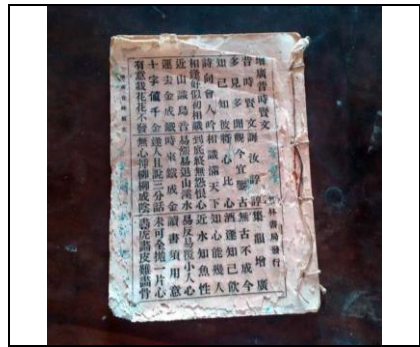 增廣昔時賢文
林書局發行
昔時賢文誨汝諄諄集韻增廣
多見多聞觀今宜鑒古無古不成今
知己知彼將心比心酒逢知己飲
詩向會人吟相識滿天下知心能幾人
相逢好似初相識到底無怨恨心近水知魚性
近山識鳥音易漲易退山溪水易反易覆小人心
運去金成鐵時來鐵成金讀書須用意
字値千金逢人且說三分話未可全拋一片心
有意栽花花不發無心插柳柳成陰畫虎畫皮難畫骨